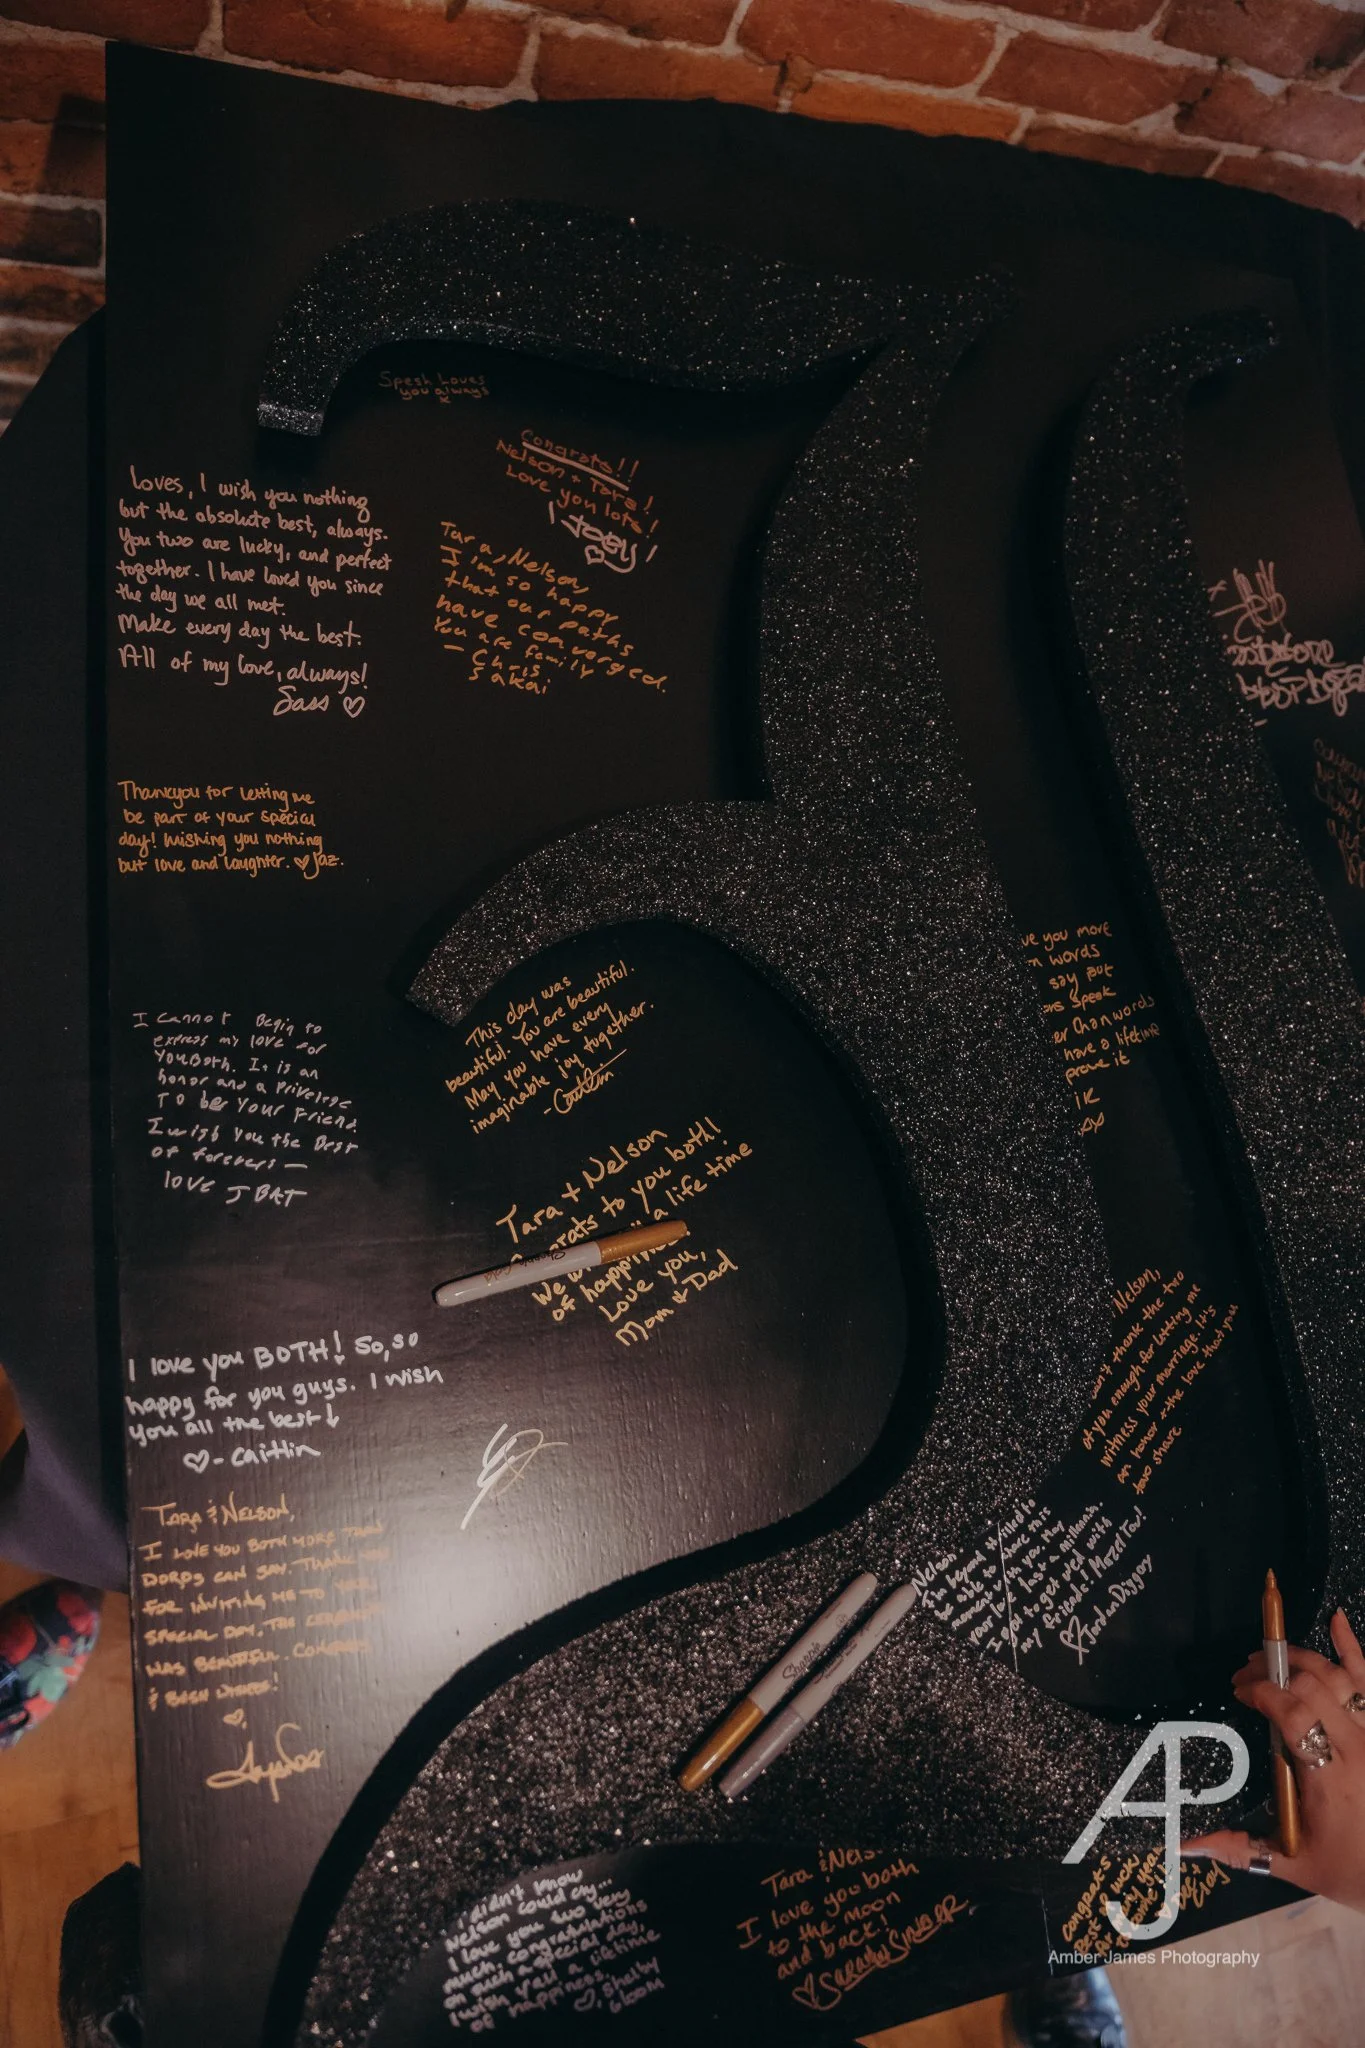 Spesh Loves
you always
Congrats!!
Nelson + Tara!
Love you lots!
Loves, I wish you nothing
but the absolute best, always.
You two are lucky, and perfect
together. I have loved you since
the day we all met.
Make every day the best.
All of my love, always!
Sass
Tara, Nelson,
I'm so happy
that our paths
have converged.
You are family
- Chris
Sakai
Thankyou for letting me
be part of your special
day! Wishing you nothing
but love and laughter. ♡ Jaz.
ve you more
words
say but
speak
er than words
have a lifetime
prove it
I cannot begin to
express my love for
you both. It is an
honor and a privelege
to be your friend.
I wish you the best
of forevers —
love J BAT
This day was
beautiful. You are beautiful.
May you have every
imaginable joy together.
- Caitlin
Tara + Nelson
to you both!
a life time
of happiness!
Love you,
Mom & Dad
I love you BOTH! So, so
happy for you guys. I wish
you all the best!
♡ - Caitlin
Nelson,
thank the two
of you enough for letting me
witness your marriage. It's
an honor + the love that you
two share
Tara & Nelson,
I love you both more than
dorps can say. Thank you
for inviting me to your
special day. The ceremony
was beautiful. Congrats
& best wishes!
Nelson
I'm beyond thrilled to
be able to share this
moment with you. May
your love last a millennia.
I got to get wed with
my friends! Mazel Tov!
♡ Jordan Diggory
I didn't know
Nelson could cry...
I love you two very
much. congratulations
on such a special day,
I wish y'all a lifetime
of happiness.
♡, Shelby
Bloom
Tara & Nels
I love you both
to the moon
and back!
♡ Sarah Sinber
Congrats
Best of luck
Sharpie
AJP
Amber James Photography